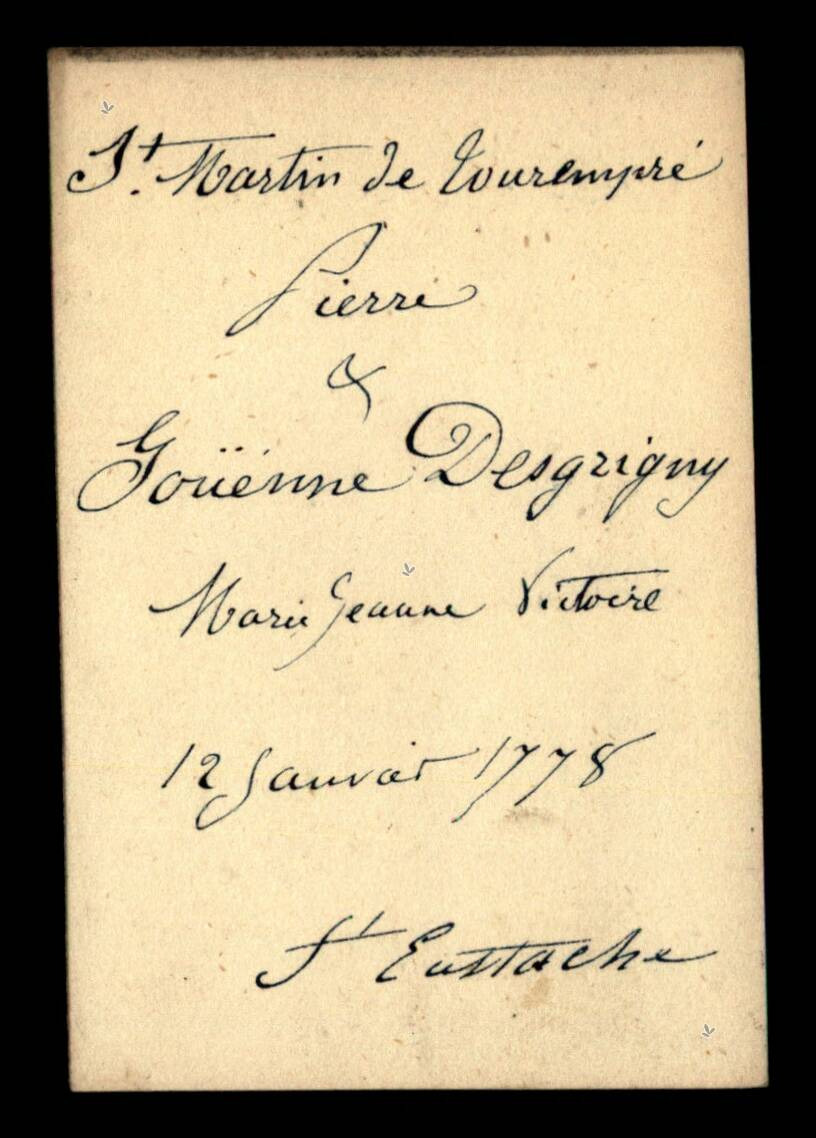 St. Martin de Tourempré
Pierre
&
Goüenne Desgrigny
Marie Jeanne Victoire
12 Janvier 1778
St Eustache